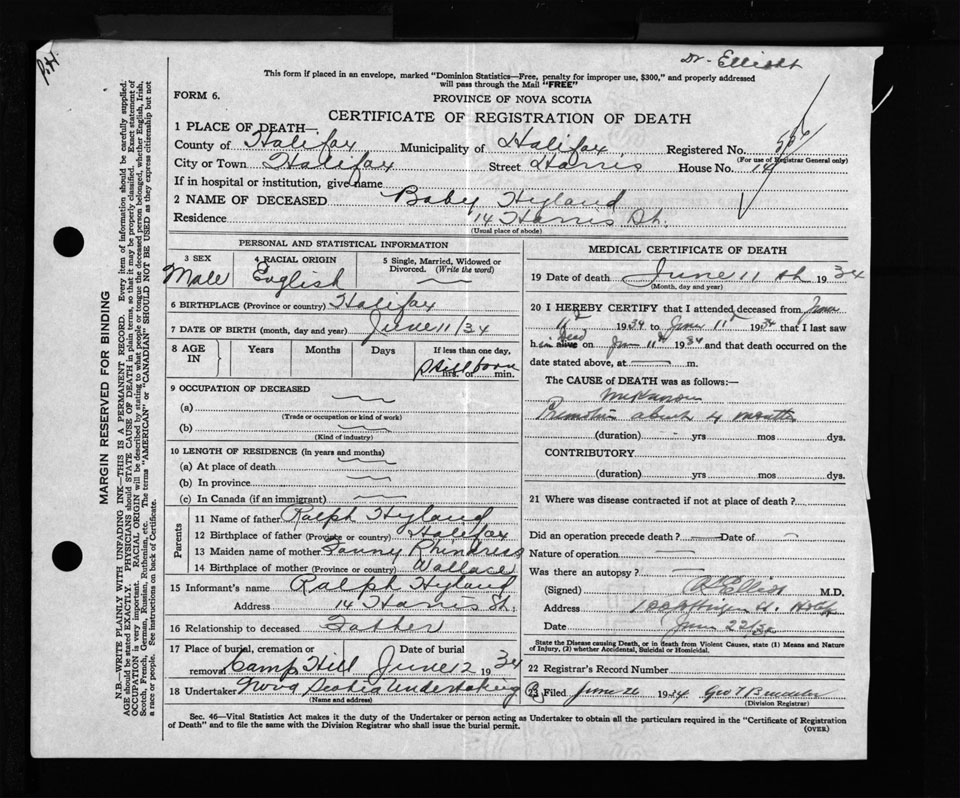 Dr. Elliott
This form if placed in an envelope, marked "Dominion Statistics—Free, penalty for improper use, $300," and properly addressed
will pass through the Mail "FREE"
FORM 6.
PROVINCE OF NOVA SCOTIA
CERTIFICATE OF REGISTRATION OF DEATH
1 PLACE OF DEATH—
County of Halifax Municipality of Halifax Registered No.
(For use of Registrar General only)
City or Town Halifax Street Harris House No. 14
If in hospital or institution, give name
2 NAME OF DECEASED Baby Hyland
Residence 14 Harris St.
(Usual place of abode)
PERSONAL AND STATISTICAL INFORMATION
3 SEX 4 RACIAL ORIGIN 5 Single, Married, Widowed or Divorced. (Write the word)
Male English
6 BIRTHPLACE (Province or country) Halifax
7 DATE OF BIRTH (month, day and year) June 11/34
8 AGE IN Years Months Days If less than one day,
Stillborn
hrs. or min.
9 OCCUPATION OF DECEASED
(a)
(Trade or occupation or kind of work)
(b)
(Kind of industry)
10 LENGTH OF RESIDENCE (in years and months)
(a) At place of death
(b) In province
(c) In Canada (if an immigrant)
Parents
11 Name of father Ralph Hyland
12 Birthplace of father (Province or country) Halifax
13 Maiden name of mother Fanny Rhindress
14 Birthplace of mother (Province or country) Wallace
15 Informant's name Ralph Hyland
Address 14 Harris St.
16 Relationship to deceased Father
17 Place of burial, cremation or removal Date of burial
Camp Hill June 12 1934
18 Undertaker Nova Scotia Undertaking Co
(Name and address)
MEDICAL CERTIFICATE OF DEATH
19 Date of death June 11 th 1934
(Month, day and year)
20 I HEREBY CERTIFY that I attended deceased from June
11 1934 to June 11 1934 that I last saw
h im alive dead on June 11 1934 and that death occurred on the
date stated above, at m.
The CAUSE of DEATH was as follows:—
Unknown
Premature about 4 months
(duration) yrs mos dys.
CONTRIBUTORY
(duration) yrs mos dys.
21 Where was disease contracted if not at place of death?
Did an operation precede death? Date of
Nature of operation
Was there an autopsy?
(Signed) Elliott M.D.
Address
Date June 22/34
State the Disease causing Death, or in death from Violent Causes, state (1) Means and Nature
of Injury, (2) whether Accidental, Suicidal or Homicidal.
22 Registrar's Record Number
23 Filed June 26 1934 Geo T
(Division Registrar)
Sec. 46—Vital Statistics Act makes it the duty of the Undertaker or person acting as Undertaker to obtain all the particulars required in the "Certificate of Registration
of Death" and to file the same with the Division Registrar who shall issue the burial permit.
(OVER)
MARGIN RESERVED FOR BINDING
N.B.—WRITE PLAINLY WITH UNFADING INK—THIS IS A PERMANENT RECORD. Every item of information should be carefully supplied.
AGE should be stated EXACTLY. PHYSICIANS should STATE CAUSE OF DEATH in plain terms, so that it may be properly classified. Exact statement of
OCCUPATION is very important. RACIAL ORIGIN will be described by stating to what people or tongue the deceased person belonged, whether English, Irish,
Scotch, French, German, Russian, Ruthenian, etc. The terms "AMERICAN" or "CANADIAN" SHOULD NOT BE USED as they express citizenship but not
a race or people. See instructions on back of Certificate.